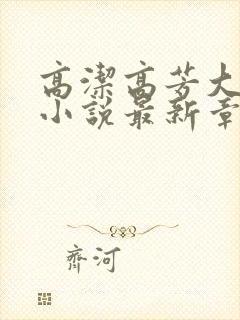 高潔高芳大
小說最新章
齊河